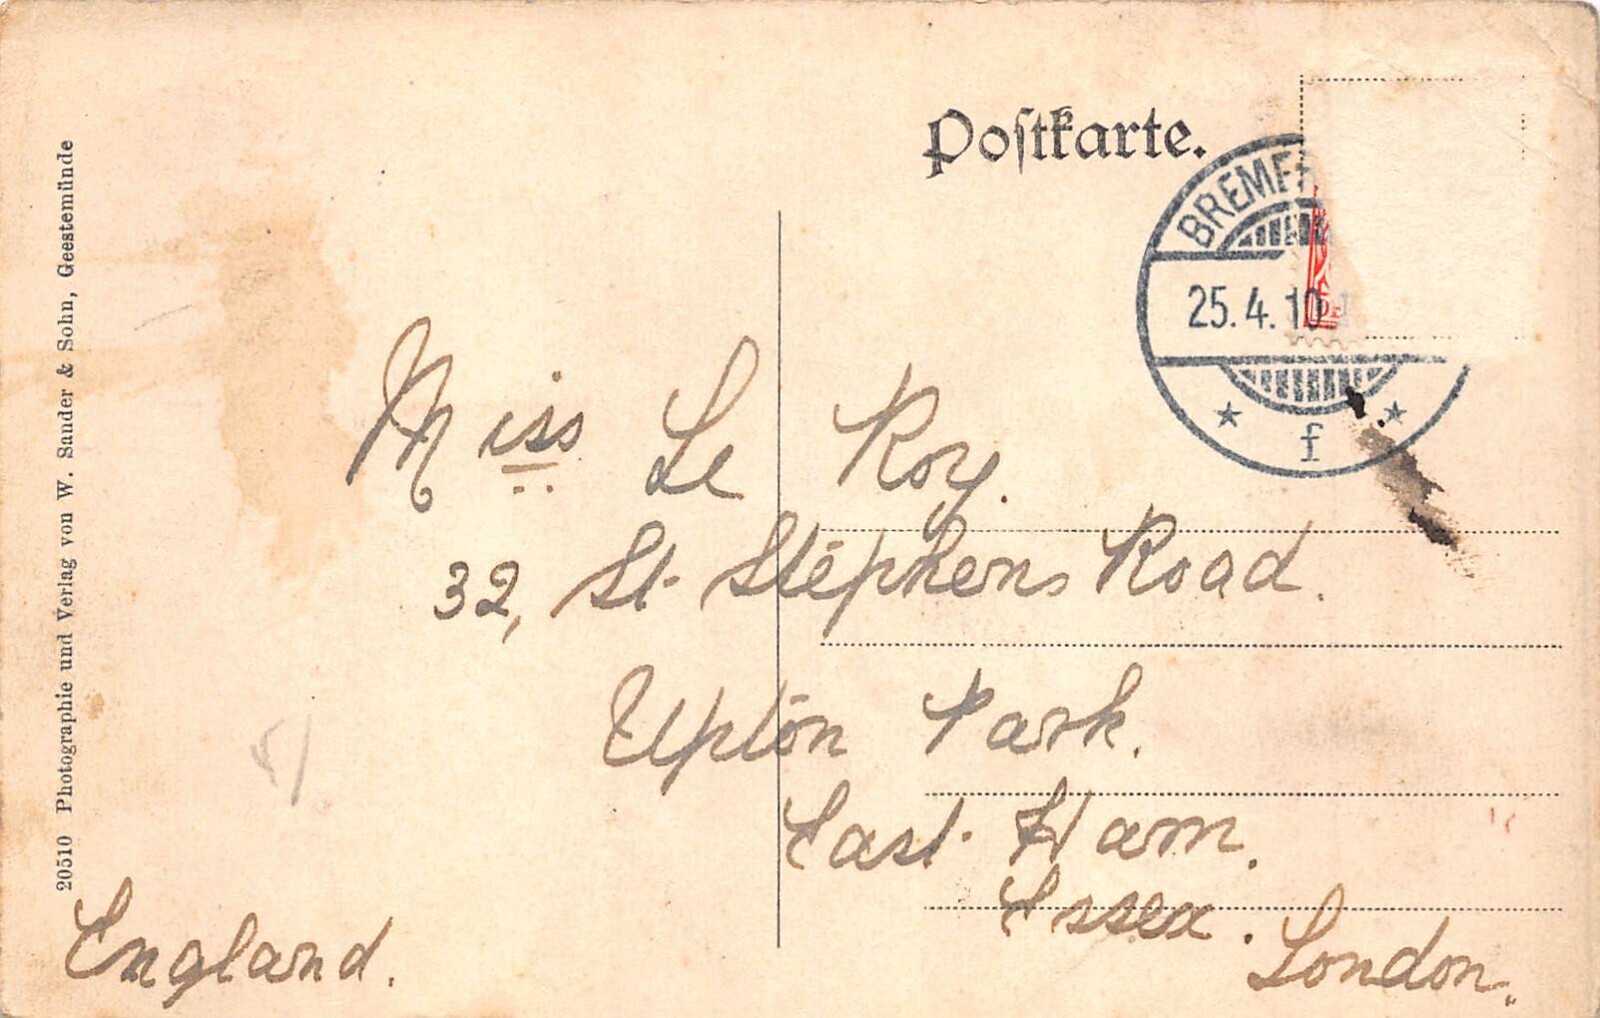 Postkarte.
BREMER
25.4.10
f
Miss Le Roy.
32, St. Stephens Road.
Upton Park.
East Ham.
Essex.
London.
England.
20510 Photographie und Verlag von W. Sander & Sohn, Geestemünde